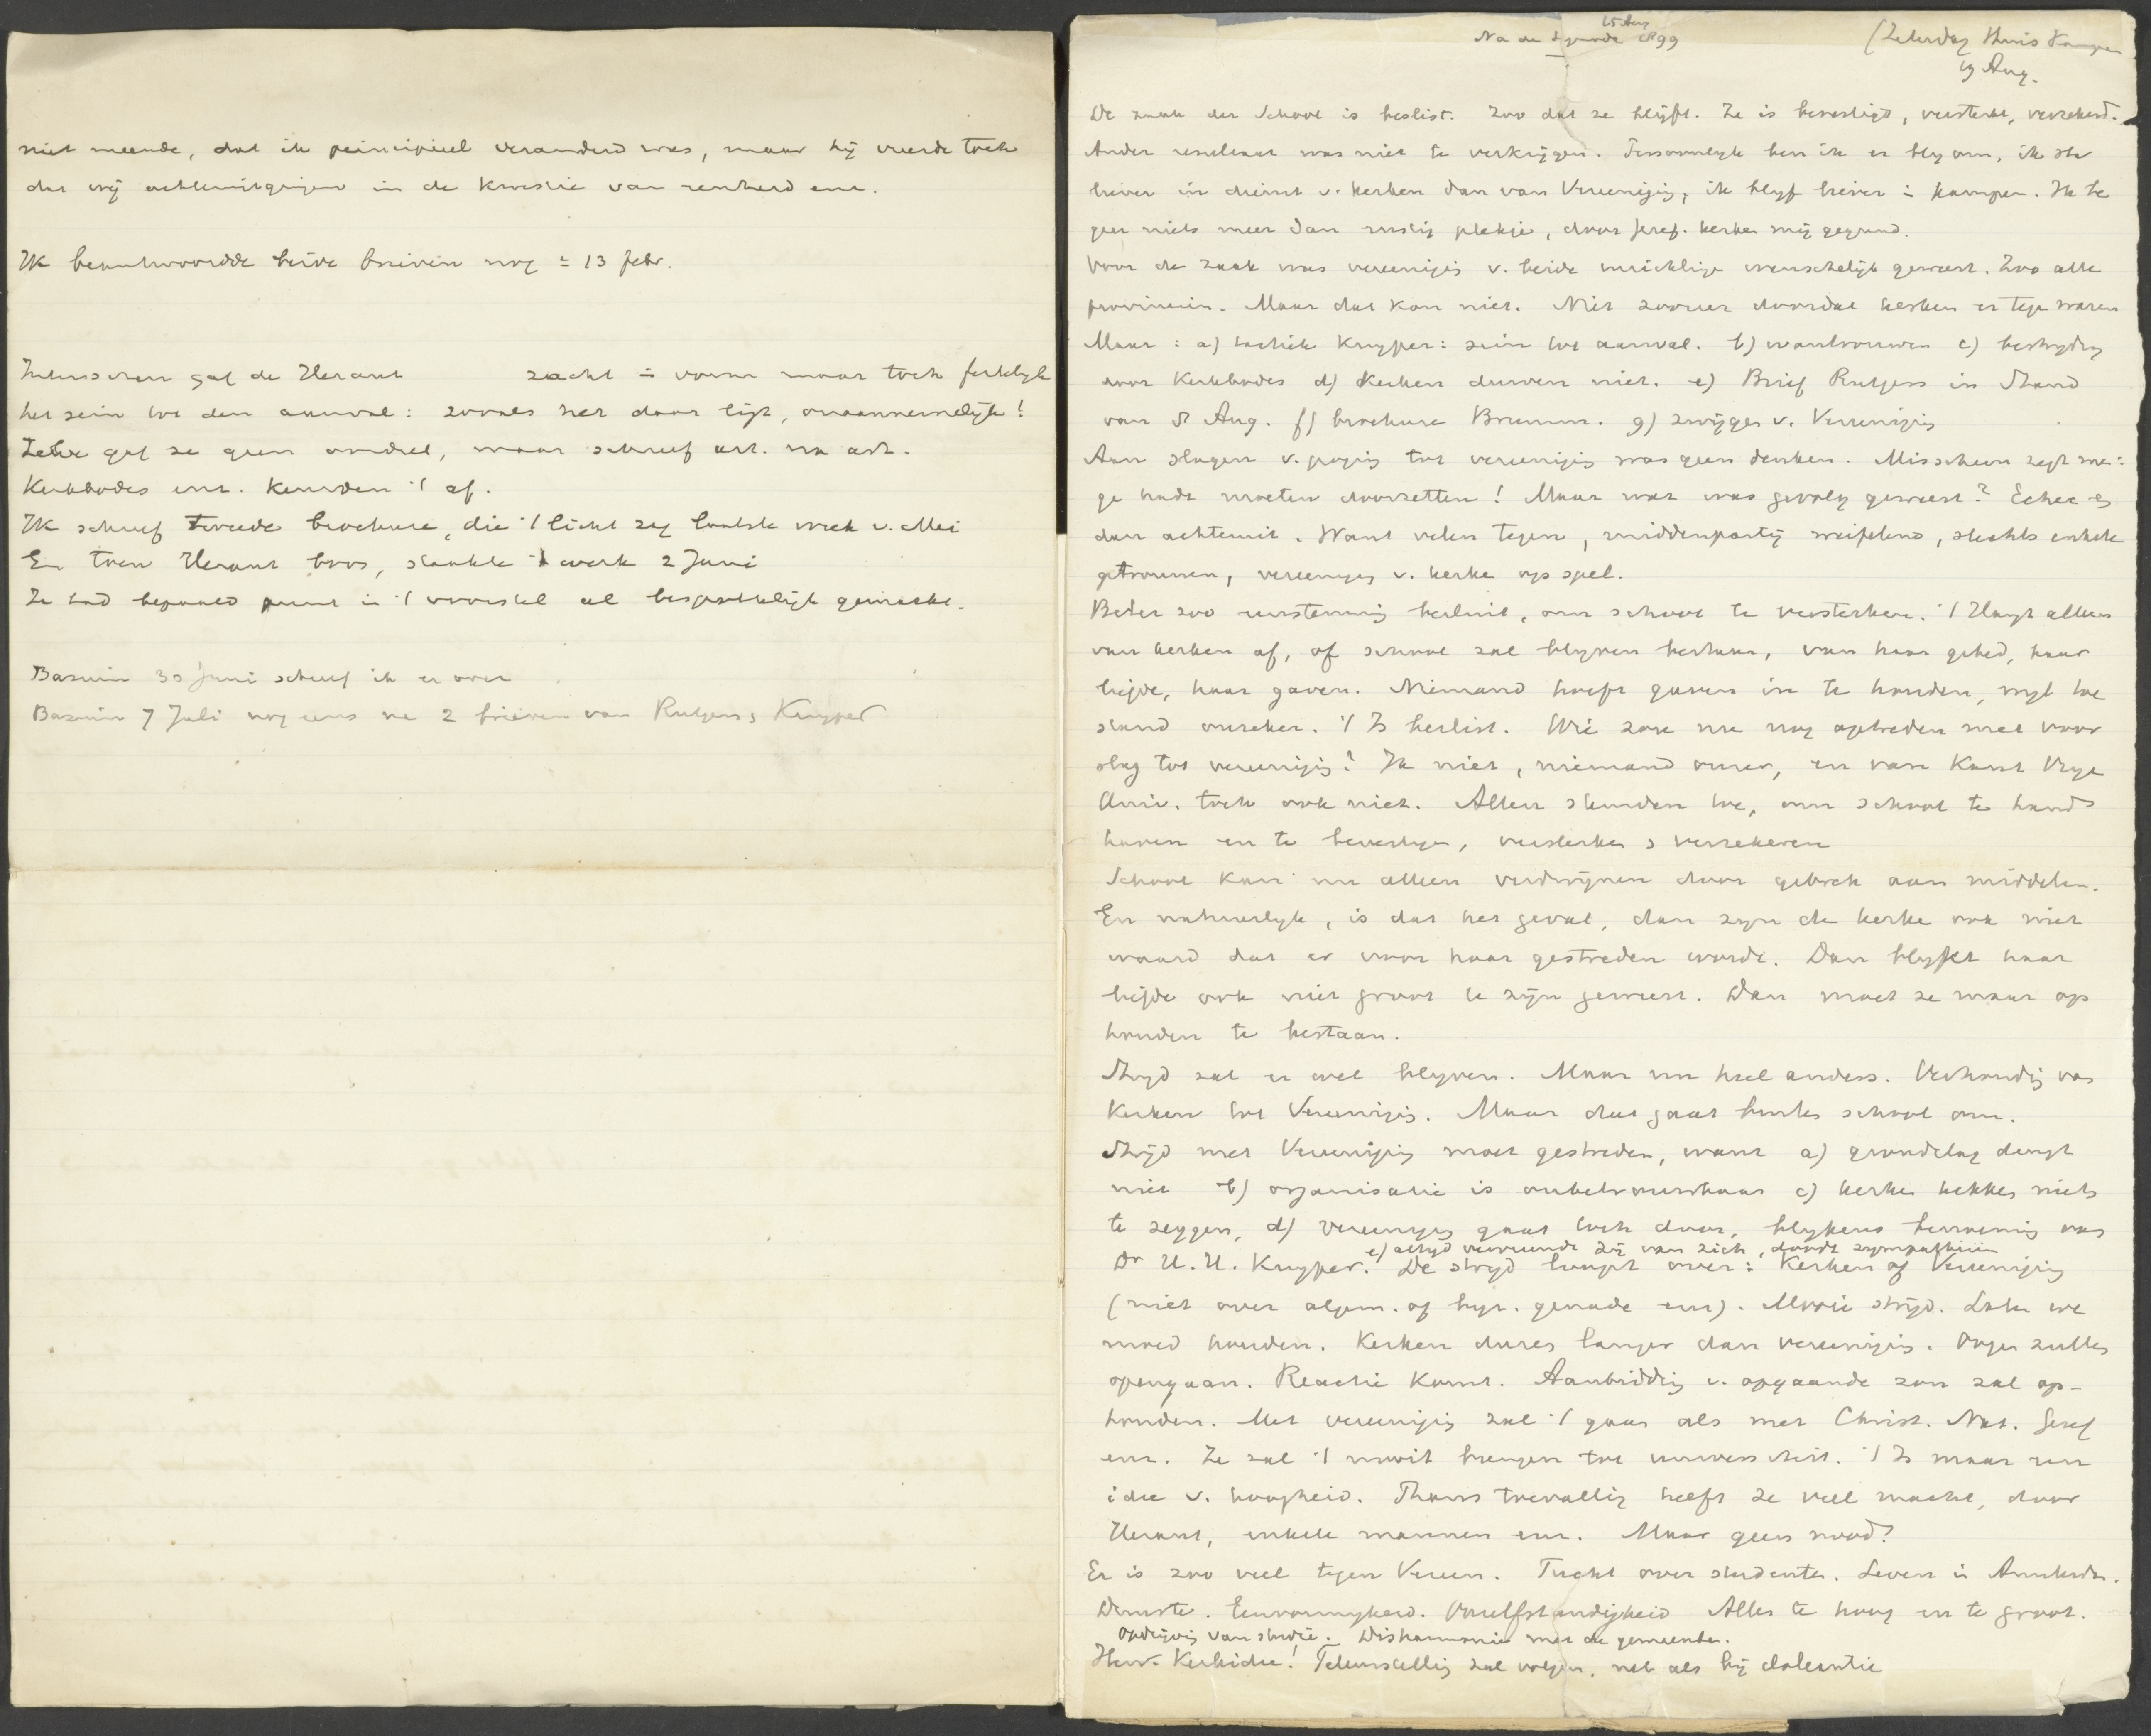 niet meende, dat ik principieel veranderd was, maar hij vreesde toch
dat wij achteruitgingen in de kwestie van zuiverheid enz.
Ik beantwoordde beide brieven nog = 13 febr.
Intusschen gaf de Heraut zacht in vorm maar toch feitelijk
het sein tot den aanval: zooals het daar ligt, onaannemelijk!
Zelve gaf ze geen oordeel, maar schreef art. na art.
Kerkbodes enz. keurden 't af.
Ik schreef tweede brochure, die 't licht zag laatste week v. Mei
En toen Heraut boos, staakte 't werk 2 Juni
Ze had bepaald punt in 't voorstel al bespottelijk gemaakt.
Bazuin 30 Juni schreef ik er over
Bazuin 7 Juli nog eens na 2 brieven van Rutgers & Kuyper
15 Aug
Na de Synode 1899
(Zaterdag thuis Kampen
19 Aug.
De zaak der School is beslist. Zoo dat ze blijft. Ze is bevestigd, versterkt, verzekerd.
Ander resultaat was niet te verkrijgen. Persoonlijk ben ik er bly om, ik sta
liever in dienst v. kerken dan van Vereeniging, ik blyf liever in Kampen. Ik be
geer niets meer dan rustig plekje, door Geref. kerken mij gegund.
Voor de zaak was vereeniging v. beide inrichtingen wenschelijk geweest. Zoo alle
provincien. Maar dat kon niet. Niet zoozeer doordat kerken er tegen waren
Maar: a) tactiek Kuyper: sein tot aanval. b) wantrouwen c) bestryding
door Kerkbodes d) Kerken durven niet. e) Brief Rutgers in Stand
van 5 Aug. f) brochure Brummel. g) zwijgen v. Vereeniging
Aan slagen v. poging tot vereeniging was geen denken. Misschien zegt men:
ge hadt moeten doorzetten! Maar wat was gevolg geweest? Echec en
dan achteruit. Want velen tegen, middenpartij weifelend, slechts enkele
getrouwen, vereeniging v. kerken op spel.
Beter zoo eenstemmig besluit, om school te versterken. 't Hangt alleen
van kerken af, of school zal blyven bestaan, van haar gebed, haar
liefde, haar gaven. Niemand hoeft gaven in te houden, wyl toe
stand onzeker. 't Is beslist. Wie zou nu nog optreden met voor
slag tot vereeniging? Ik niet, niemand onzer, en van kant Vrye
Univ. toch ook niet. Allen stemden toe, om school te hand
haven en te bevestigen, versterken & verzekeren
School kan nu alleen verdwijnen door gebrek aan middelen.
En natuurlyk, is dat het geval, dan zyn de kerken ook niet
waard dat er voor haar gestreden worde. Dan blykt haar
liefde ook niet groot te zijn geweest. Dan moet ze maar op
houden te bestaan.
Stryd zal er wel blyven. Maar nu heel anders. Verhouding van
Kerken tot Vereeniging. Maar dat gaat buiten school om.
Strijd met Vereeniging moet gestreden, want a) grondslag deugt
niet b) organisatie is onbetrouwbaar c) kerken hebben niets
te zeggen, d) vereeniging gaat toch door, blykens benoeming van
Dr H.H. Kuyper. e) altyd vervreemde zij van zich, doodt sympathieën
De stryd loopt over: Kerken of Vereeniging
(niet over algem. of byz. genade enz). Mooie strijd. Laten we
moed houden. Kerken duren langer dan vereeniging. Oogen zullen
opengaan. Reactie komt. Aanbidding v. opgaande zon zal op-
houden. Met vereeniging zal 't gaan als met Christ. Nat. Geref
enz. Ze zal 't nooit brengen tot universiteit. 't Is maar een
idee v. hoogheid. Thans toevallig heeft ze veel macht, door
Heraut, enkele mannen enz. Maar geen nood!
Er is zoo veel tegen Vereen. Tucht over studenten. Leven in Amsterdam.
Dienste. Eenvormigheid. Onzelfstandigheid Alles te hoog en te groot.
Opdrijving van studie. Disharmonie met de gemeenten.
Herv. Kerkidee! Teleurstelling zal volgen, net als bij doleantie